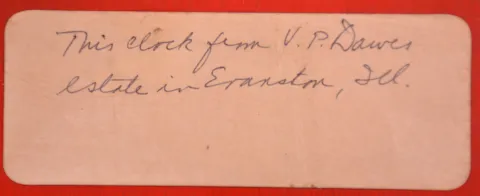 This clock from V. P. Dawes
estate in Evanston, Ill.